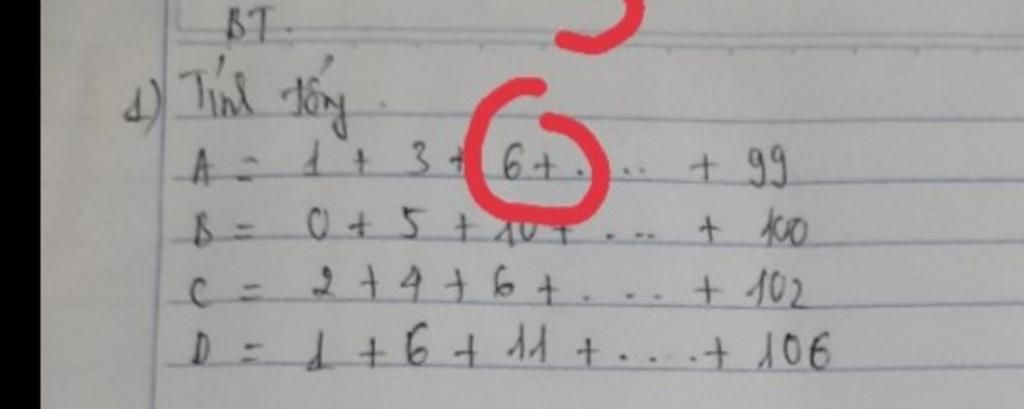 BT.
1) Tính tổng.
A = 1 + 3 + 6 + . .. + 99
B = 0 + 5 + 10 + . .. + 100
C = 2 + 4 + 6 + . ... + 102
D = 1 + 6 + 11 + .... + 106